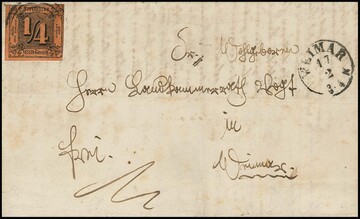 1/4
WEIMAR
17
2
3-4 N
Sr. Wohlgeboren
Herrn Landkammerrath Vogt
in
Weimar
frei